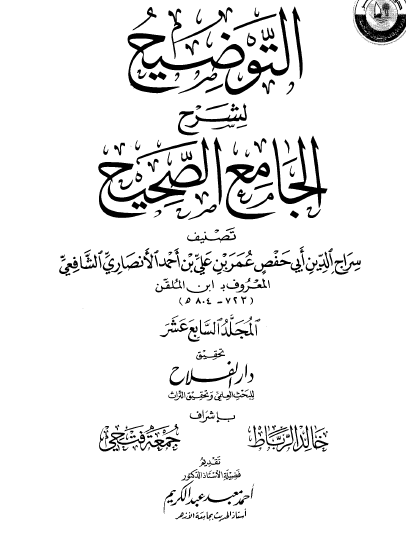 التَّوْضِيحُ
لِشَرْحِ
الْجَامِعِ الصَّحِيحِ
تَصْنِيفُ
سِرَاجِ الدِّينِ أَبِي حَفْصٍ عُمَرَ بْنِ عَلِيِّ بْنِ أَحْمَدَ الْأَنْصَارِيِّ الشَّافِعِيِّ
المَعْرُوف بِـ ابن المُلَقِّن
(٧٢٣ - ٨٠٤ هـ)
المُجَلَّدُ السَّابِعَ عَشَرَ
تحقيق
دار الفلاح
للبحث العلمي وتحقيق التراث
بإشراف
خالد الرباط
جمعة فتحي
تقديم
فضيلة الأستاذ الدكتور
أحمد معبد عبد الكريم
أستاذ الحديث بجامعة الأزهر